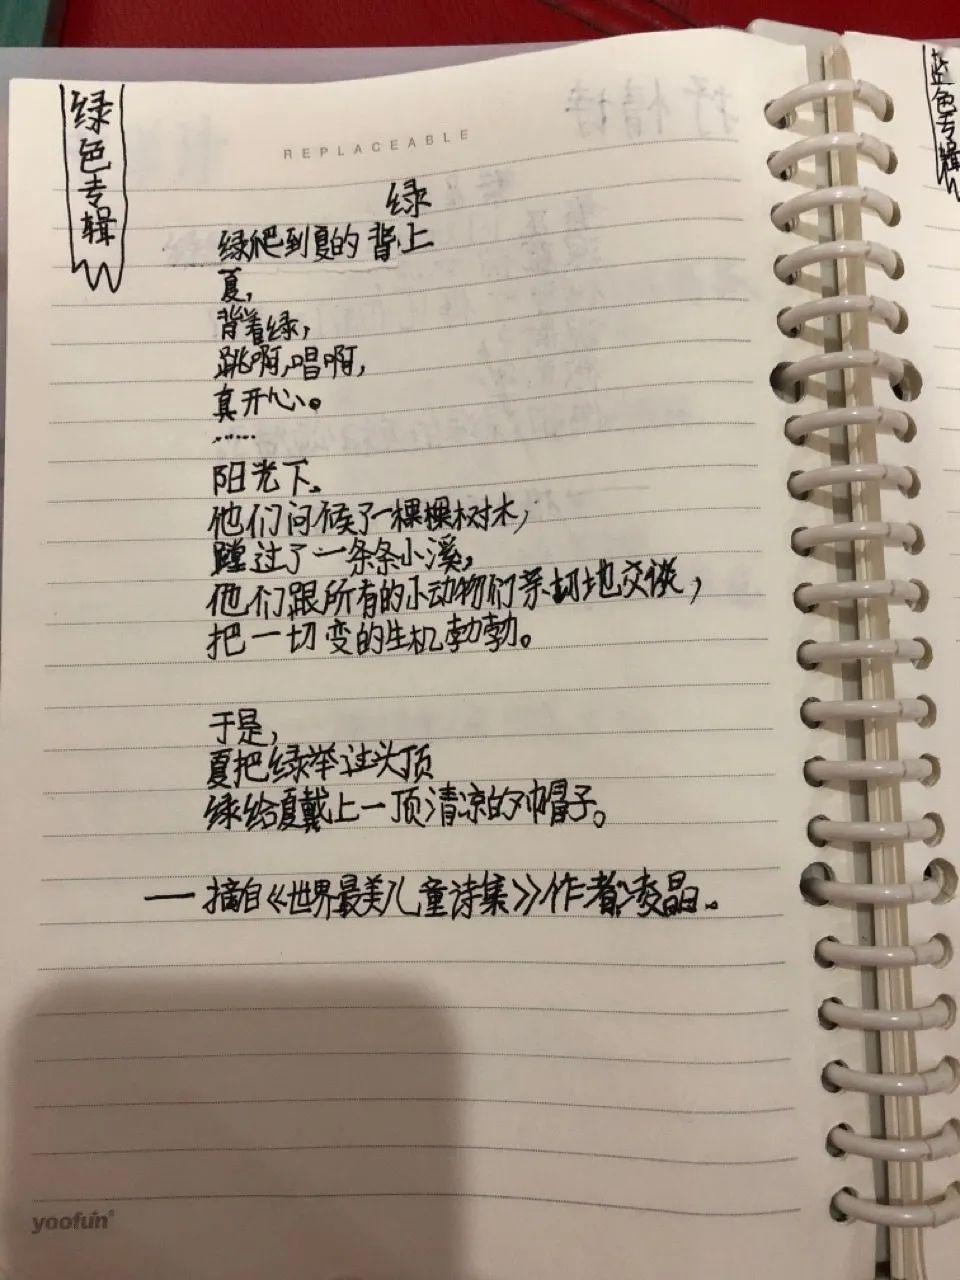 绿色专辑
REPLACEABLE
绿
绿爬到夏的背上
夏,
背着绿,
跳啊,唱啊,
真开心。
……
阳光下。
他们问候了一棵棵树木,
蹚过了一条条小溪,
他们跟所有的小动物们亲切地交谈,
把一切变的生机勃勃。
于是,
夏把绿举过头顶
绿给夏戴上一顶清凉的小帽子。
——摘自《世界最美儿童诗集》作者:凌晶。
yoofun
蓝色专辑